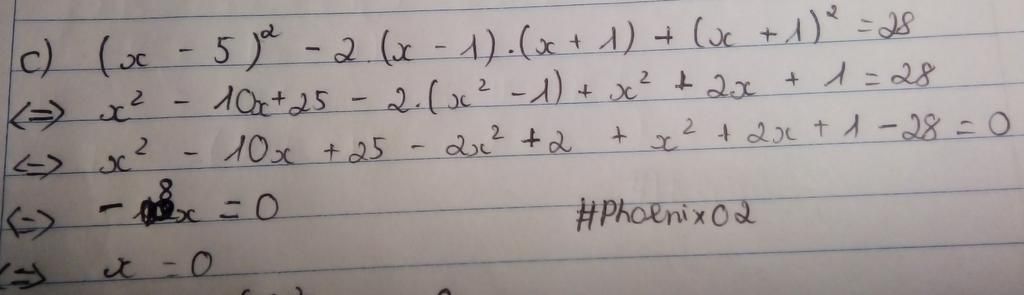 c) (x - 5)² - 2.(x - 1).(x + 1) + (x + 1)² = 28
<=> x² - 10x + 25 - 2.(x² - 1) + x² + 2x + 1 = 28
<=> x² - 10x + 25 - 2x² + 2 + x² + 2x + 1 - 28 = 0
<=> - 8x = 0 #Phoenix02
<=> x = 0